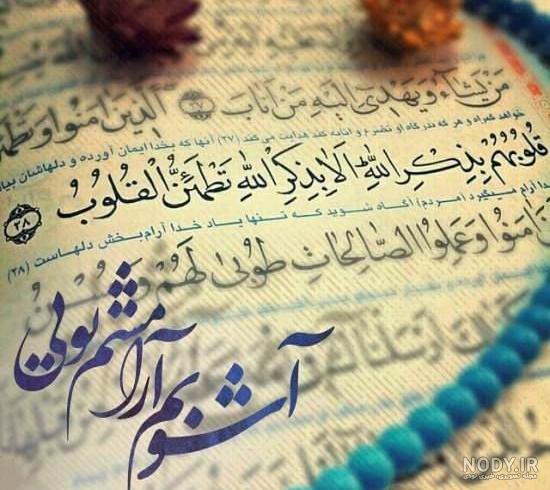 مَن يَشَاءُ وَيَهْدِي إِلَيْهِ مَنْ أَنَابَ ۝٢٧ الَّذِينَ آمَنُوا وَتَطْمَئِنُّ
خواهد گمراه و هر که بدرگاه او تضرع و انابه کند هدایت می کند (۲۷) آنها که بخدا ایمان آورده و دلهاشان بیاد
قُلُوبُهُم بِذِكْرِ اللَّهِ أَلَا بِذِكْرِ اللَّهِ تَطْمَئِنُّ الْقُلُوبُ ۝٢٨
خدا آرام میگیرد (مردم) آگاه شوید که تنها یاد خدا آرام بخش دلهاست (۲۸)
آمَنُوا وَعَمِلُوا الصَّالِحَاتِ طُوبَى لَهُمْ وَحُسْنُ
آشوبم آرامشم تویی
NODY.IR
مجله تصویری خبری نودی